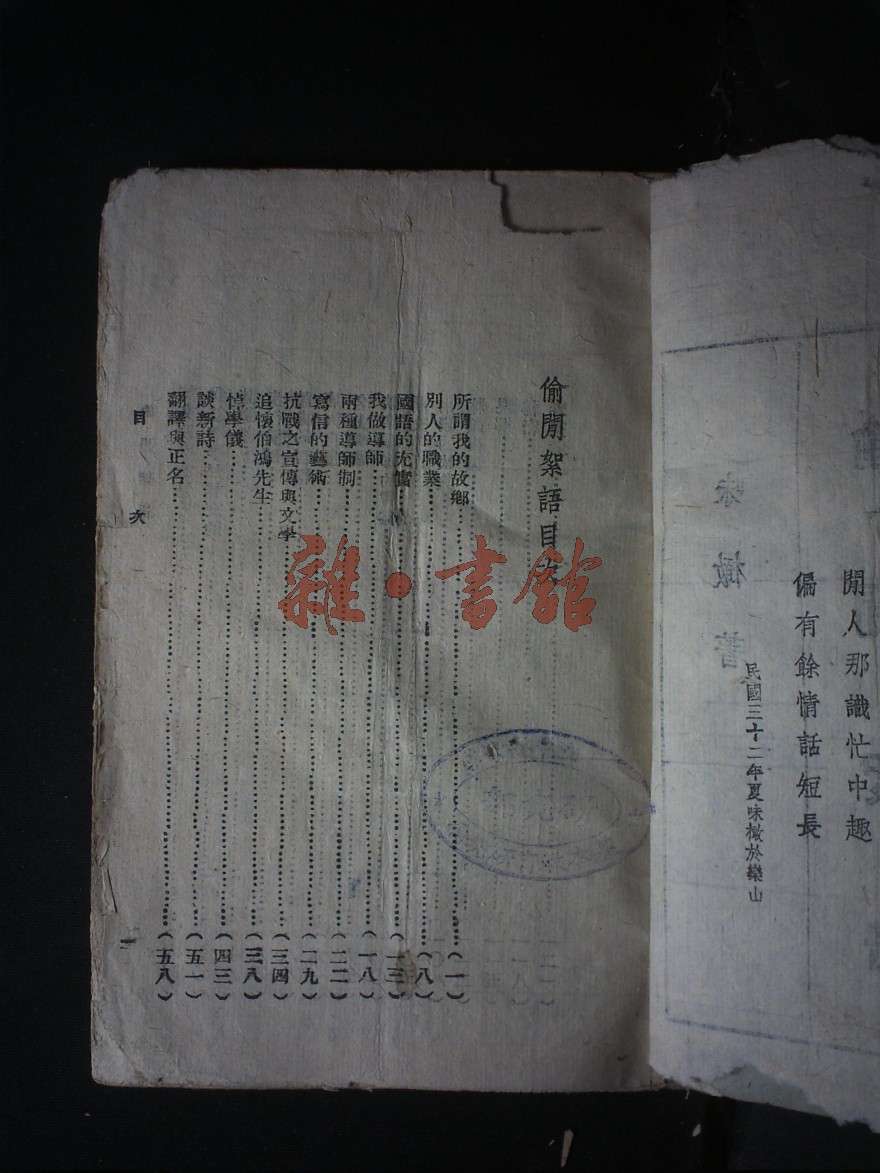 閒人那識忙中趣
偏有餘情話短長
民國三十二年夏味橄於樂山
味橄著
偷閒絮語目次
所謂我的故鄉(一)
別人的職業(八)
國語的充實(一三)
我做導師(一八)
兩種導師制(二二)
寫信的藝術(二九)
抗戰之宣傳與文學(三四)
追懷伯鴻先生(三八)
悼學儀(四三)
談新詩(五一)
翻譯與正名(五八)
目次
一
雜·書館